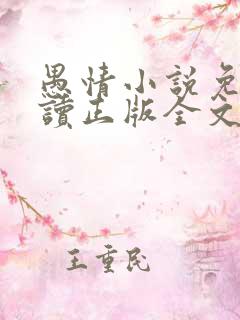 愚情小説免
讀正版全文
王重民